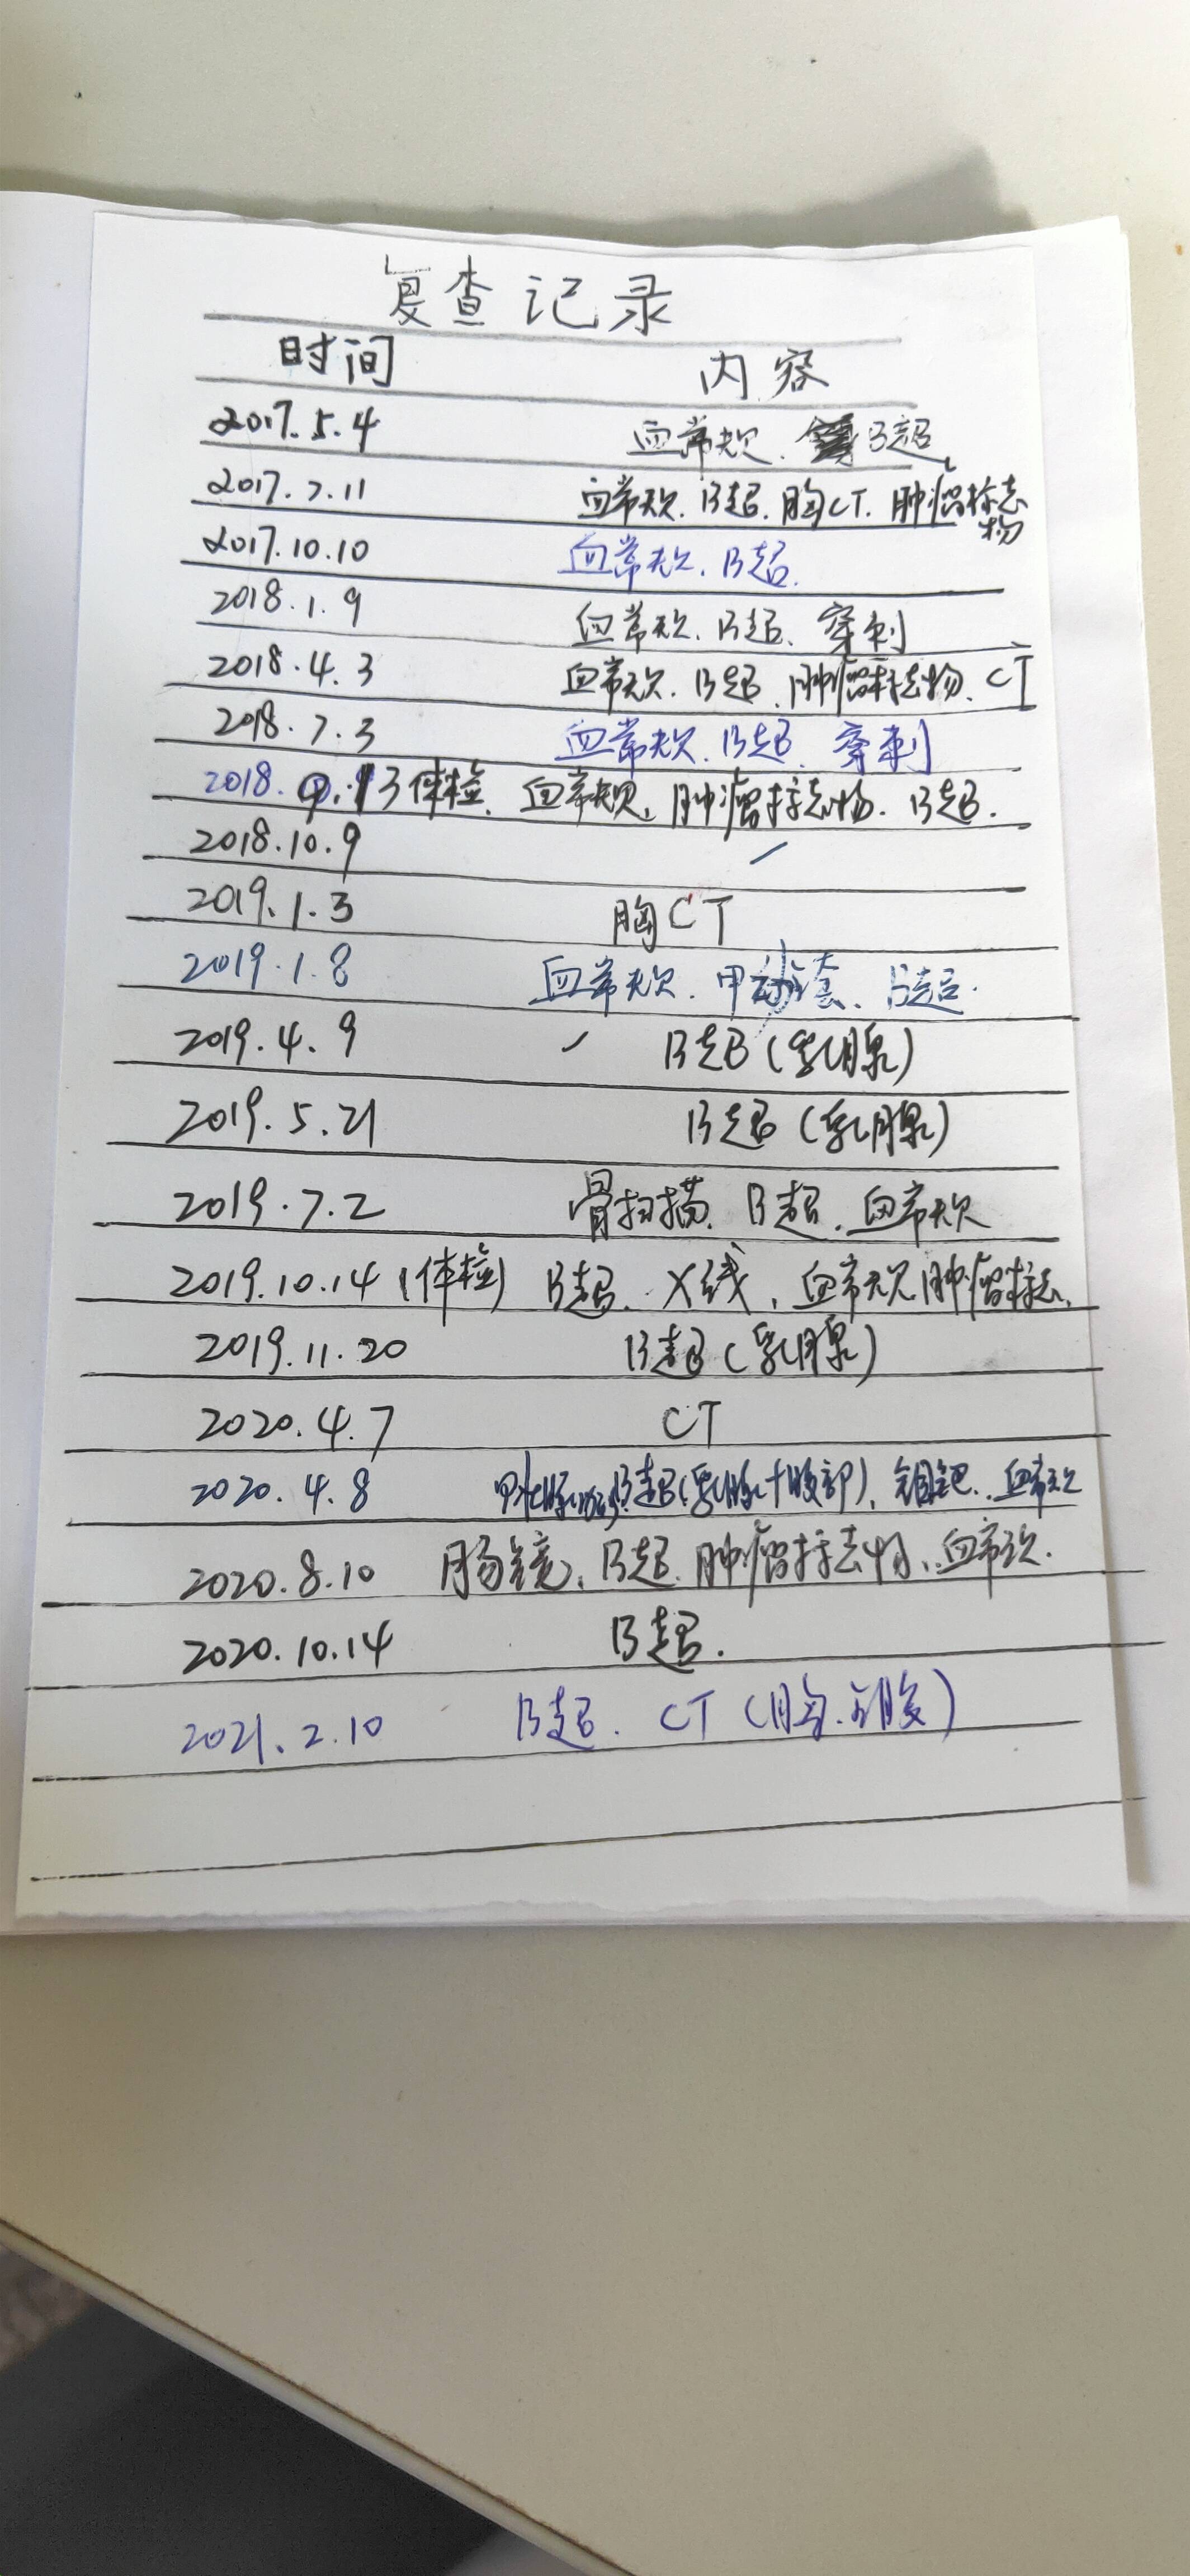 复查记录
时间 内容
2017.5.4 血常规、B超
2017.7.11 血常规、B超、胸CT、肿瘤标志物
2017.10.10 血常规、B超
2018.1.9 血常规、B超、穿刺
2018.4.3 血常规、B超、肿瘤标志物、CT
2018.7.3 血常规、B超、穿刺
2018. 13体检、血常规、肿瘤标志物、B超.
2018.10.9
2019.1.3 胸CT
2019.1.8 血常规、甲功 套、B超.
2019.4.9 B超(乳腺)
2019.5.21 B超(乳腺)
2019.7.2 骨扫描、B超、血常规
2019.10.14(体检) B超、X线、血常规 肿瘤标志
2019.11.20 B超(乳腺)
2020.4.7 CT
2020.4.8 B超(乳腺+腹部)、钼靶、血常规
2020.8.10 肠镜、B超、肿瘤标志物、血常规.
2020.10.14 B超.
2021.2.10 B超. CT(胸. 腹)